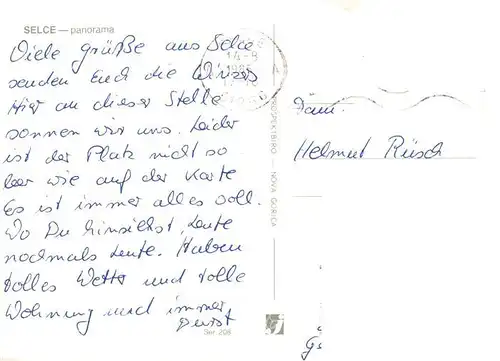 SELCE — panorama
Viele grüße aus Selce
senden Euch die Winzers
Hier an dieser Stelle
sonnen wir uns. Leider
ist der Platz nicht so
leer wie auf der Karte
Es ist immer alles voll.
Wo Du hinsiehst, Leute
nochmals Leute. Haben
tolles Wetter und tolle
Wohnung und immer
Durst
Ser. 208
14-8
1985
51266
NOVA GORICA
Fam.
Helmut Rüsch